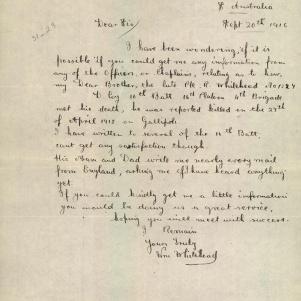 Australia
Sept 20th 1916
Dear Sir
I have been wondering if it is
possible if you could get me any information
from any of the Officers, or Chaplains, relating as to how
my Dear Brother, the late Pte R. Whitehead No 1327
D Coy 16 Batt. 16th Platoon 4th Brigade
met his death, he was reported killed on the 27th
of April 1915 on Gallipoli.
I have written to several of the 16th Batt.
cant get any satisfaction though.
His Mam and Dad write me nearly every mail
from England, asking me if I have heard anything
yet.
If you could kindly get me a little information
you would be doing us a great service,
hoping you will meet with success.
I Remain
Yours Truly
Wm Whitehead